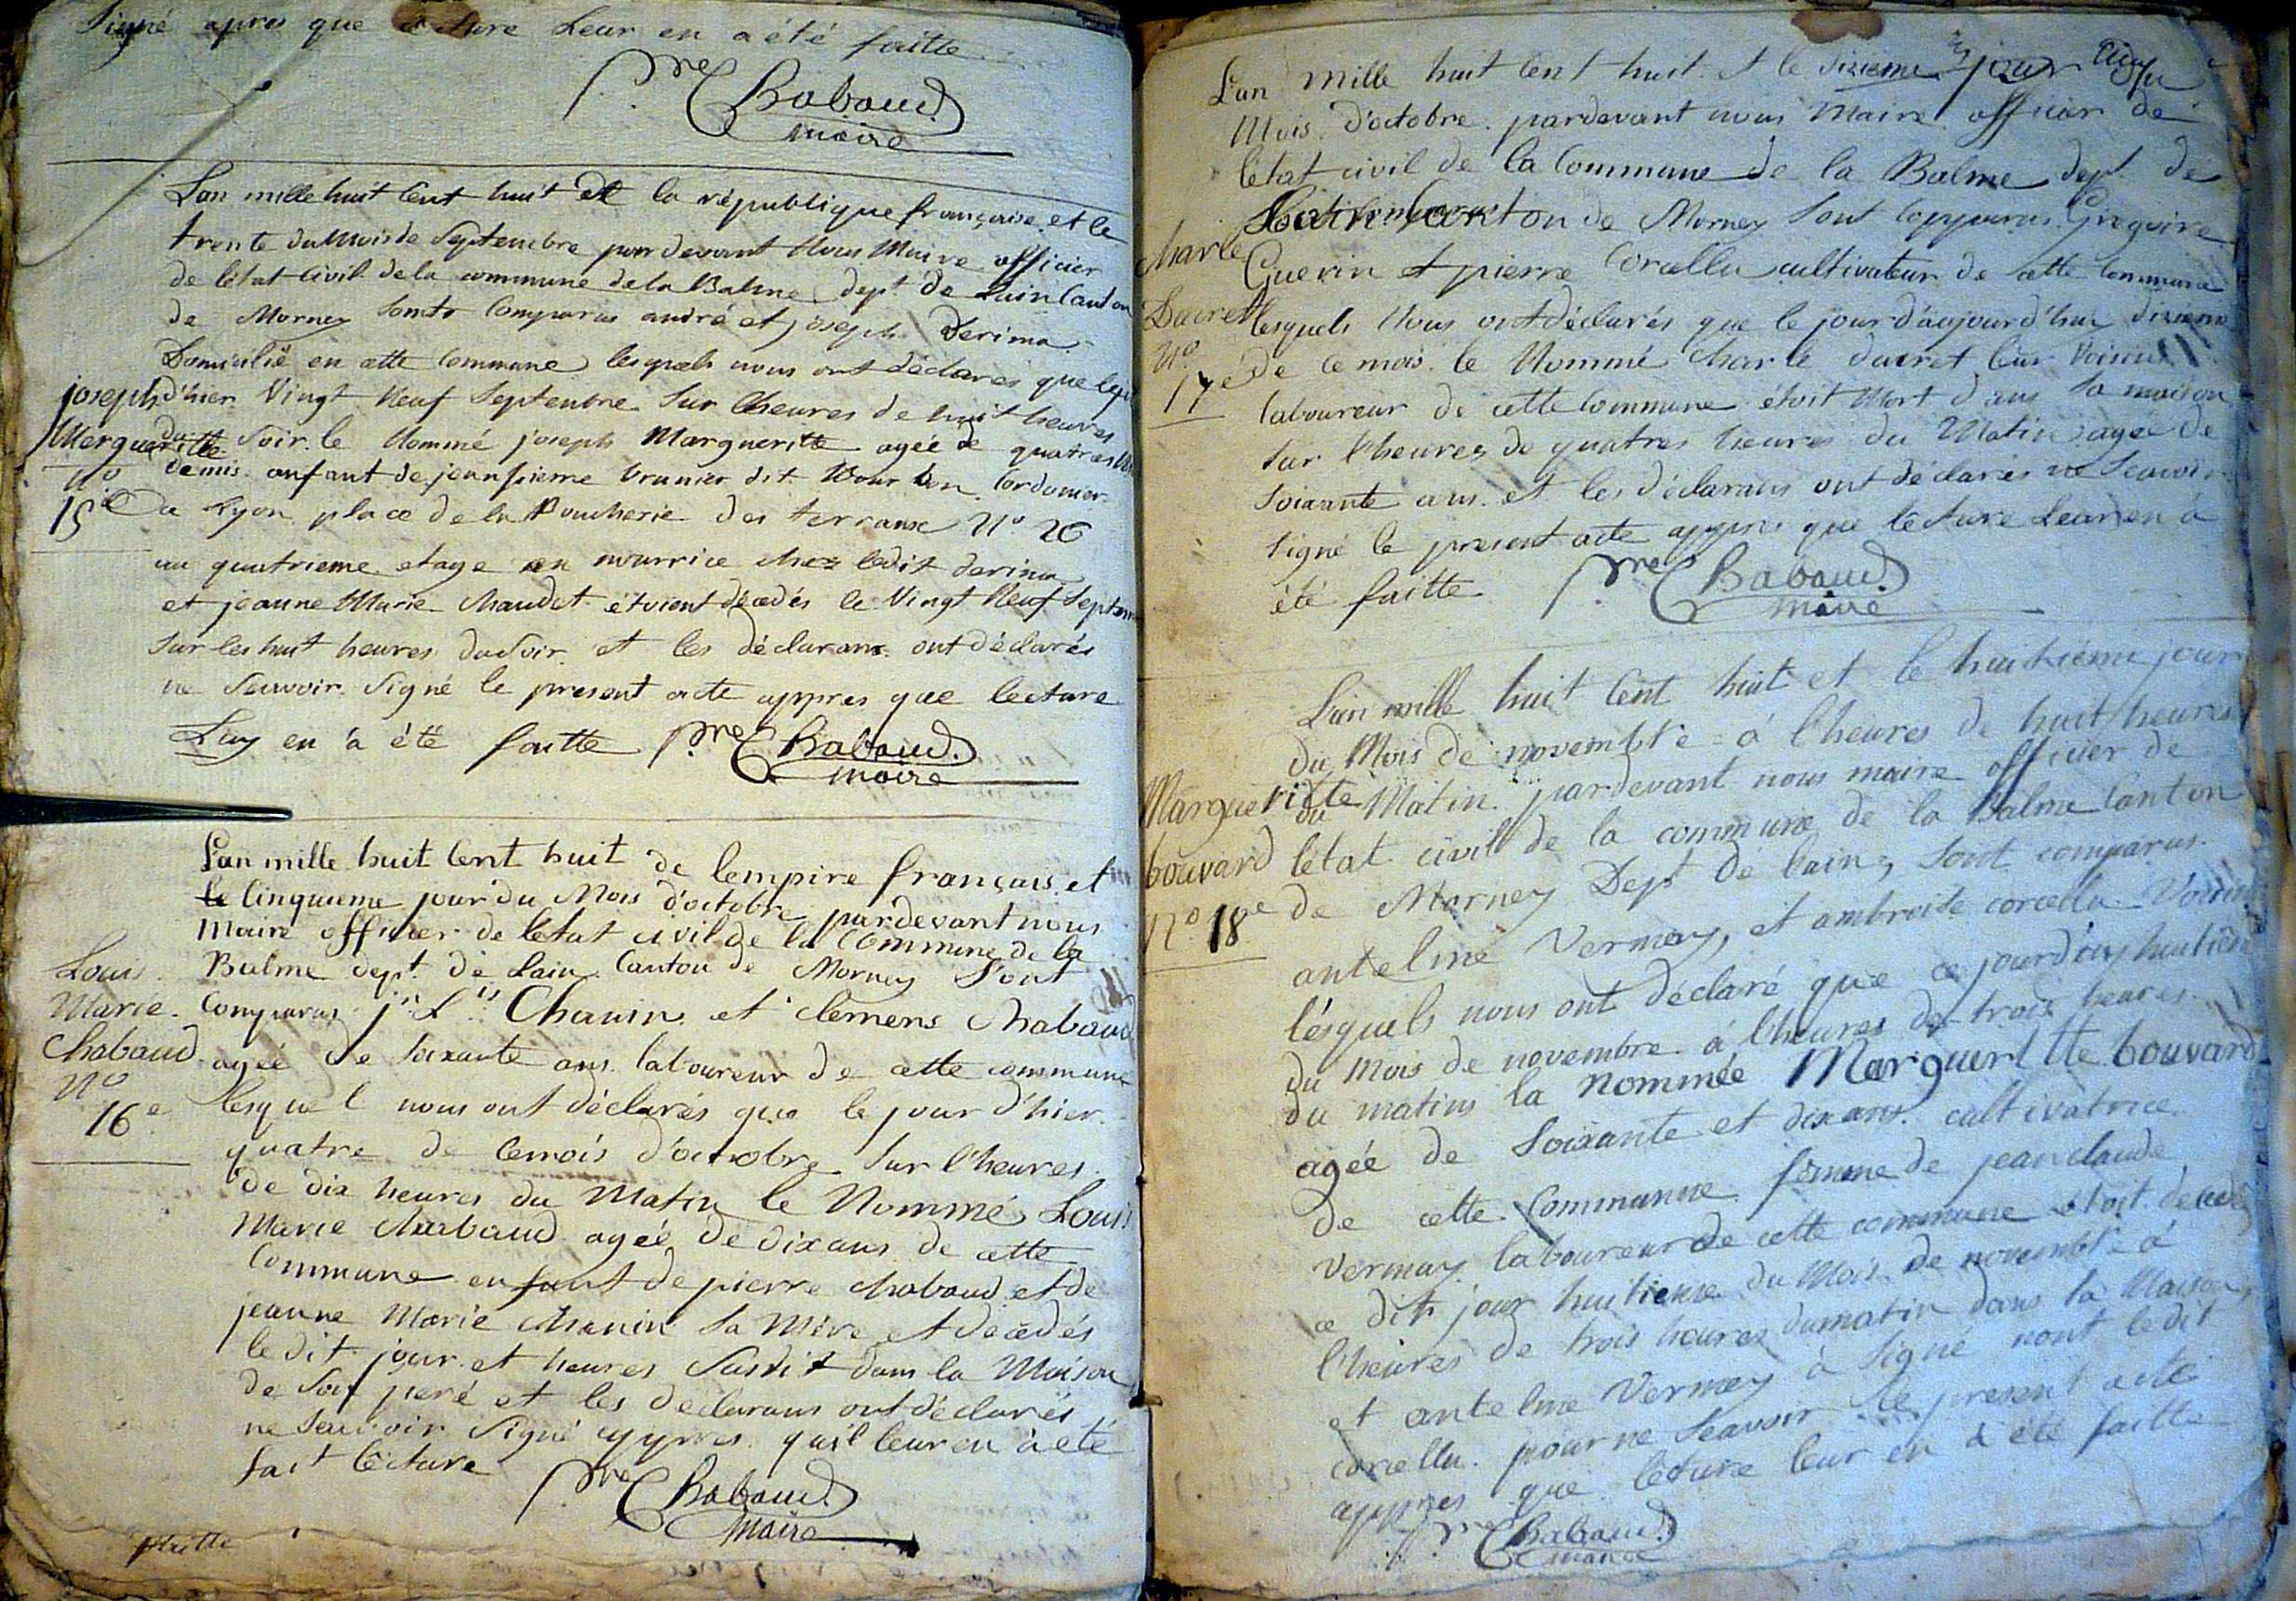 Signé apres que lecture Leur en a été faitte
P.re Chabaud
maire
Lan mille huit Cent huit de la république française et le
trente du Mois de Septembre pardevant Nous Maire officier
de l'état civil de la commune de la Balme dept. de Lain Canton
de Mornay Sonts Comparus andré et joseph Derima
Domicilié en cette Commune lesquels nous ont déclarés que le jour
joseph
Marguerite
No
15e
d'hier Vingt Neuf Septembre Sur lheures de huit heures
du Soir le Nommé joseph Margueritte agée de quatres
demis enfant de jean pierre brunier dit Bourbon Cordonier
a Lyon place de la Boucherie des terraux No 26
au quatrieme etage en nourrice chez ledit derima
et jeanne Marie Chaudet étoient décédés le Vingt Neuf Septembre
Sur les huit heures du Soir et les déclarans ont déclarés
ne Seavoir Signé le present acte appres que lecture
Luy en à été faitte P.re Chabaud
maire
L'an mille huit Cent huit de lempire français et
le Cinquieme jour du Mois d'octobre pardevant nous
Maire officier de l'état civil de la Commune de la
Balme dept. de Lain Canton de Mornay Sont
Louis
Marie
Chabaud
No
16e
Comparus jn Lis Chanin et clemens Chabaud
agée de Soixante ans laboureur de cette commune
lesquel nous ont déclarés que le jour d'hier
quatre de cemois d'octobre Sur l'heures
de dix heures du Matin le Nommé Louis
Marie Chabaud agée de dix ans de cette
Commune enfant de pierre Chabaud et de
jeanne Marie Chanin Sa Mère et décédés
le dit jour et heures Susdit dans la Maison
de Son peré et les declarans ont déclarés
ne Seavoir Signé appres quil leur en à été
fait lecture P.re Chabaud
Maire
L'an mille huit Cent huit et le dixieme jour
Mois d'octobre pardevant nous Maire officier de
l'état civil de la Commune de la Balme dept. de
Canton de Mornay Sont Comparus Gregoire
Charle
Ducret
No
17e
Guerin et pierre Corcellu cultivateur de cette Commune
lesquels Nous ont déclarés que le jour d'aujourd'hui dixieme
de ce mois le Nommé Charle ducret leur Voisin
laboureur de cette Commune étoit Mort dans Sa maison
Sur l'heures de quatres heures du Matin agée de
Soixante ans et les déclarans ont déclarés ne Seavoir
Signé le present acte appres que lecture Leur en à
été faitte P.re Chabaud
maire
L'an mille huit Cent huit et le huitiéme jour
du Mois de novembre à l'heures de huit heures
Margueritte
bouvard
No 18e
du Matin pardevant nous maire officier de
létat civil de la commune de la Balme Canton
de Mornay Dept de Lain, Sont comparus
antelme Vermay, et ambroise corcellu Voisin
lésquels nous ont déclaré que ce jourd'huy huitième
du Mois de novembre à l'heures de trois heures
du matins la nommée Margueritte bouvard
agée de Soixante et dix ans cultivatrice
de cette Commune femme de jean claude
Vermay laboureur de cette commune étoit décédé
ce dit jour huitieme du Mois de novembre à
l'heures de trois heures du matin dans Sa Maison,
et antelme Vermay à Signé nont ledit
corcellu pour ne Seavoir le present acte
appres que lecture leur en à été faitte
P.re Chabaud
maire